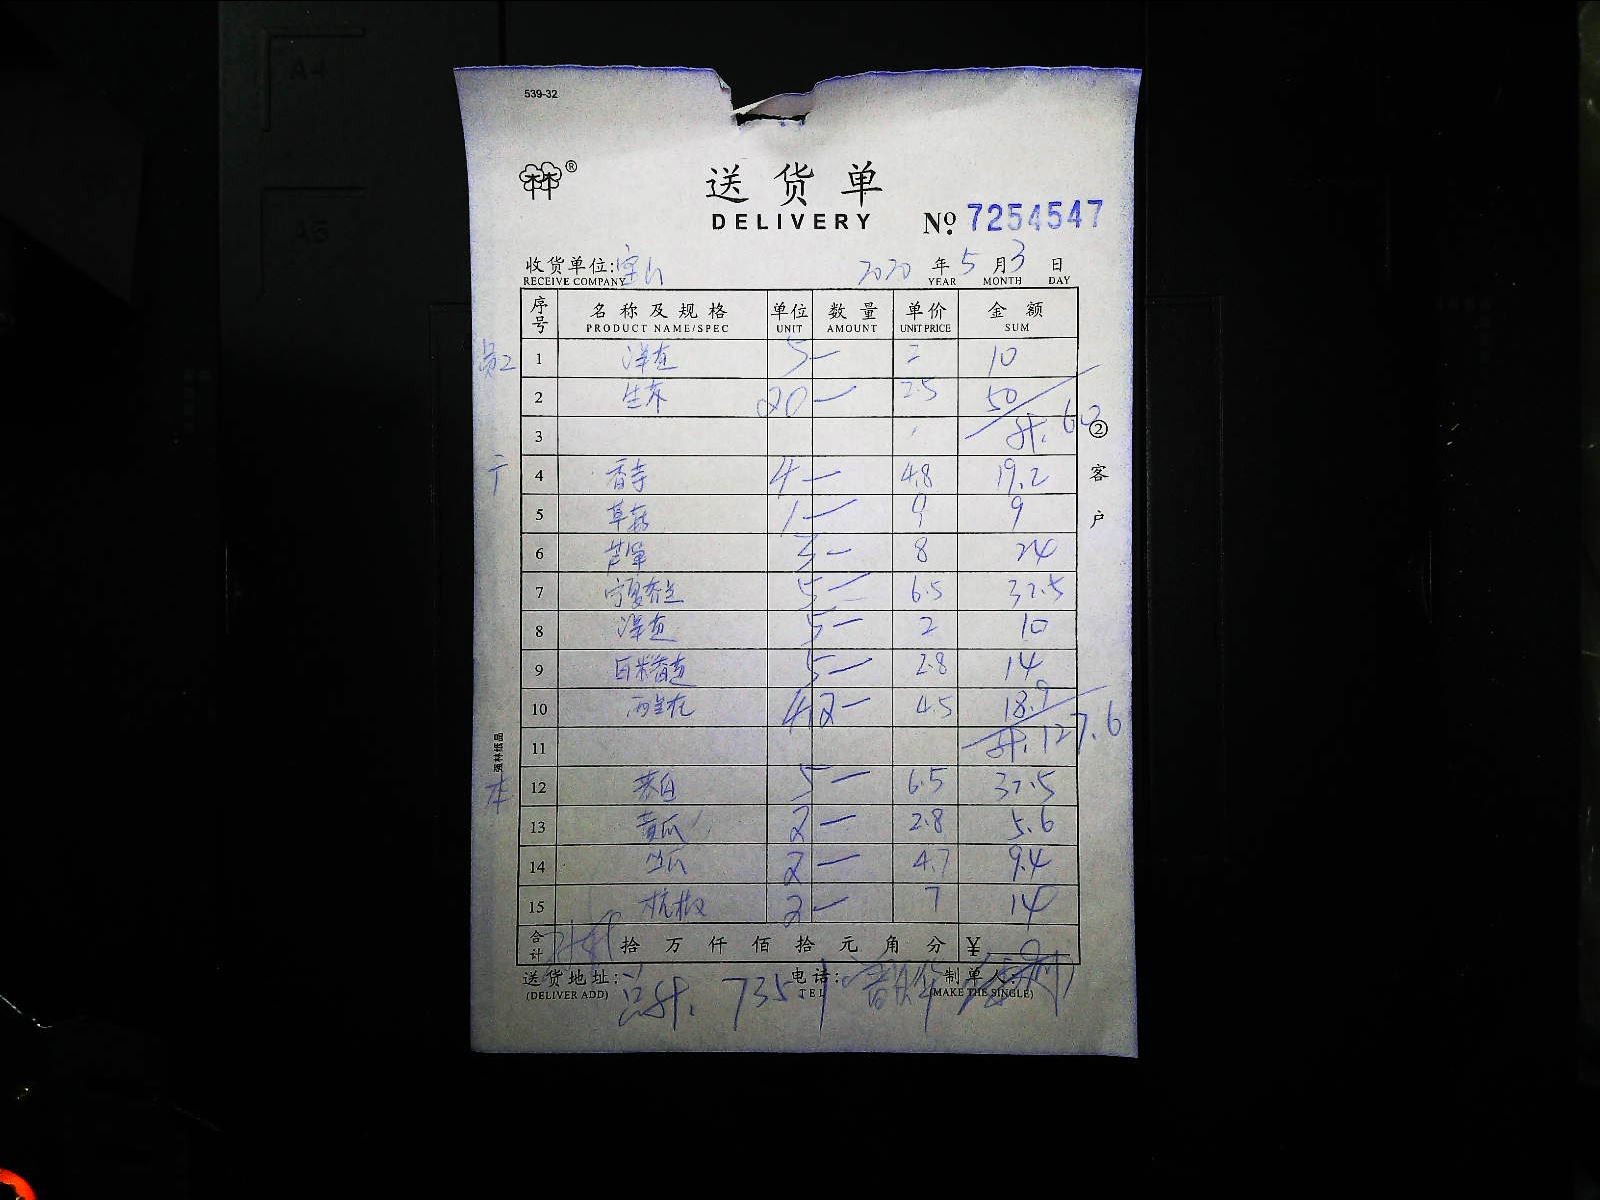 539-32
林®
送货单
DELIVERY № 7254547
收货单位: 2020 年 5 月 3 日
RECEIVE COMPANY YEAR MONTH DAY
序号 名称及规格 单位 数量 单价 金额
PRODUCT NAME/SPEC UNIT AMOUNT UNIT PRICE SUM
员工 1 洋芝 5 — 二 10
2 生菜 20 — 2.5 50
3 计. 60
4 4 — 4.8 19.2
5 草菇 1 — 9 9
6 芦笋 3 — 8 24
7 5 — 6.5 32.5
8 5 — 2 10
9 5 — 2.8 14
10 西兰花 4.2 — 4.5 18.9
11 计. 127.6
本 12 茭白 5 — 6.5 32.5
13 黄瓜 2 — 2.8 5.6
14 丝瓜 2 — 4.7 9.4
15 杭椒 2 — 7 14
合计 拾万仟佰拾元角分 ¥
送货地址: 电话: 制单人:
(DELIVER ADD) TEL (MAKE THE SINGLE)
总计. 735
②客户
强林纸品
A4
A5